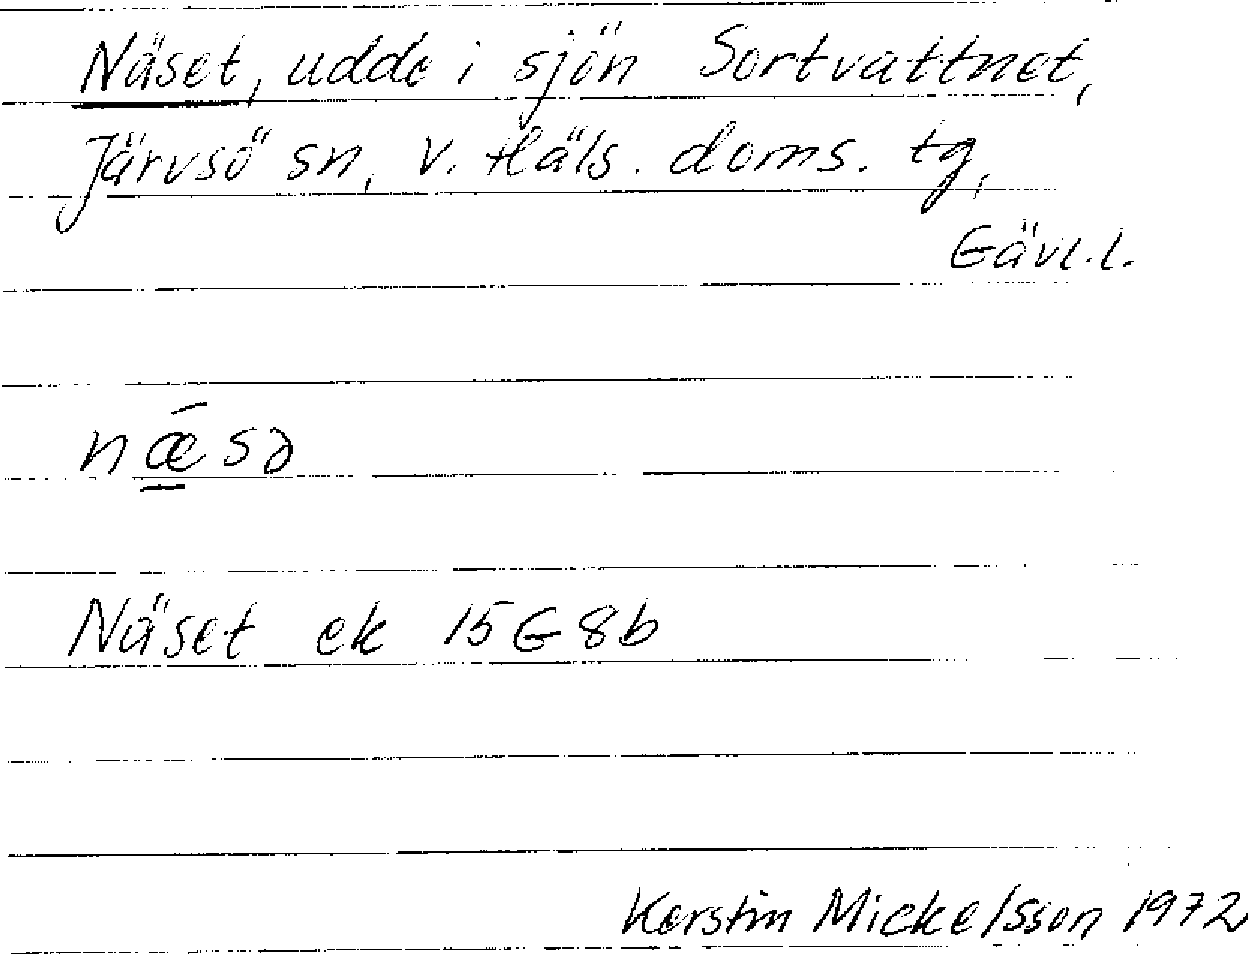 Näset, udde i sjön Sortvattnet,
Järvsö sn, v. Häls. doms. tg,
Gävl.l.
nǣ́sə
Näset ek 15G8b
Kerstin Mickelsson 1972